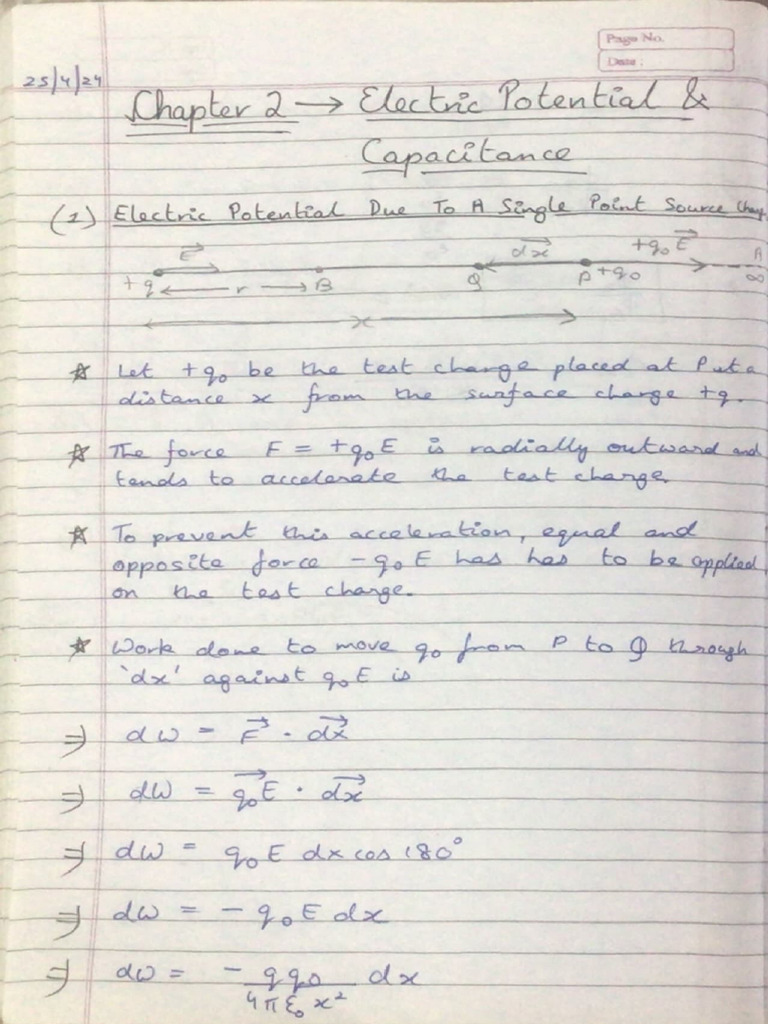 Page No.
Date:
25/4/24
Chapter 2 → Electric Potential &
Capacitance
(1) Electric Potential Due To A Single Point Source
E⃗ dx⃗ +q₀E⃗ A
+q r B Q P +q₀ ∞
x
☆ Let +q₀ be the test charge placed at P at a
distance x from the surface charge +q.
☆ The force F = +q₀E is radially outward and
tends to accelerate the test charge.
☆ To prevent this acceleration, equal and
opposite force -q₀E has has to be applied
on the test charge.
☆ Work done to move q₀ from P to Q through
'dx' against q₀E is
⇒ dw = F⃗ · dx⃗
⇒ dW = q₀E⃗ · dx⃗
⇒ dw = q₀E dx cos 180°
⇒ dw = - q₀E dx
⇒ dw = - qq₀ dx
4πε₀x²